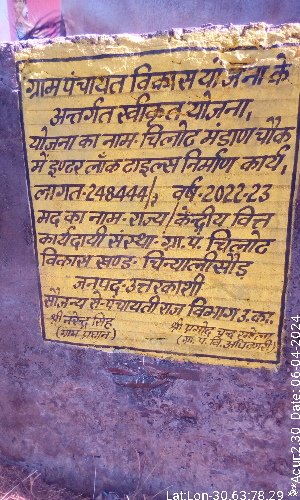 ग्राम पंचायत विकास योजना के
अन्तर्गत स्वीकृत योजना,
योजना का नाम- चिलोट मंडाण चौक
में इण्टर लॉक टाइल्स निर्माण कार्य,
लागत-248444/, वर्ष-2022-23
मद का नाम- राज्य/केन्द्रीय वित्त
कार्यदायी संस्था- ग्रा.पं. चिलोट
विकास खण्ड- चिन्यालीसौड़
जनपद-उत्तरकाशी
सौजन्य से-पंचायतीराज विभाग उ.का.
श्री नरेन्द्र सिंह श्री प्रमोद चन्द्र
(ग्राम प्रधान) (ग्रा. पं. वि. अधिकारी)
LatLon-30.63:78.29
**Acu:2.30 Date: 06-04-2024